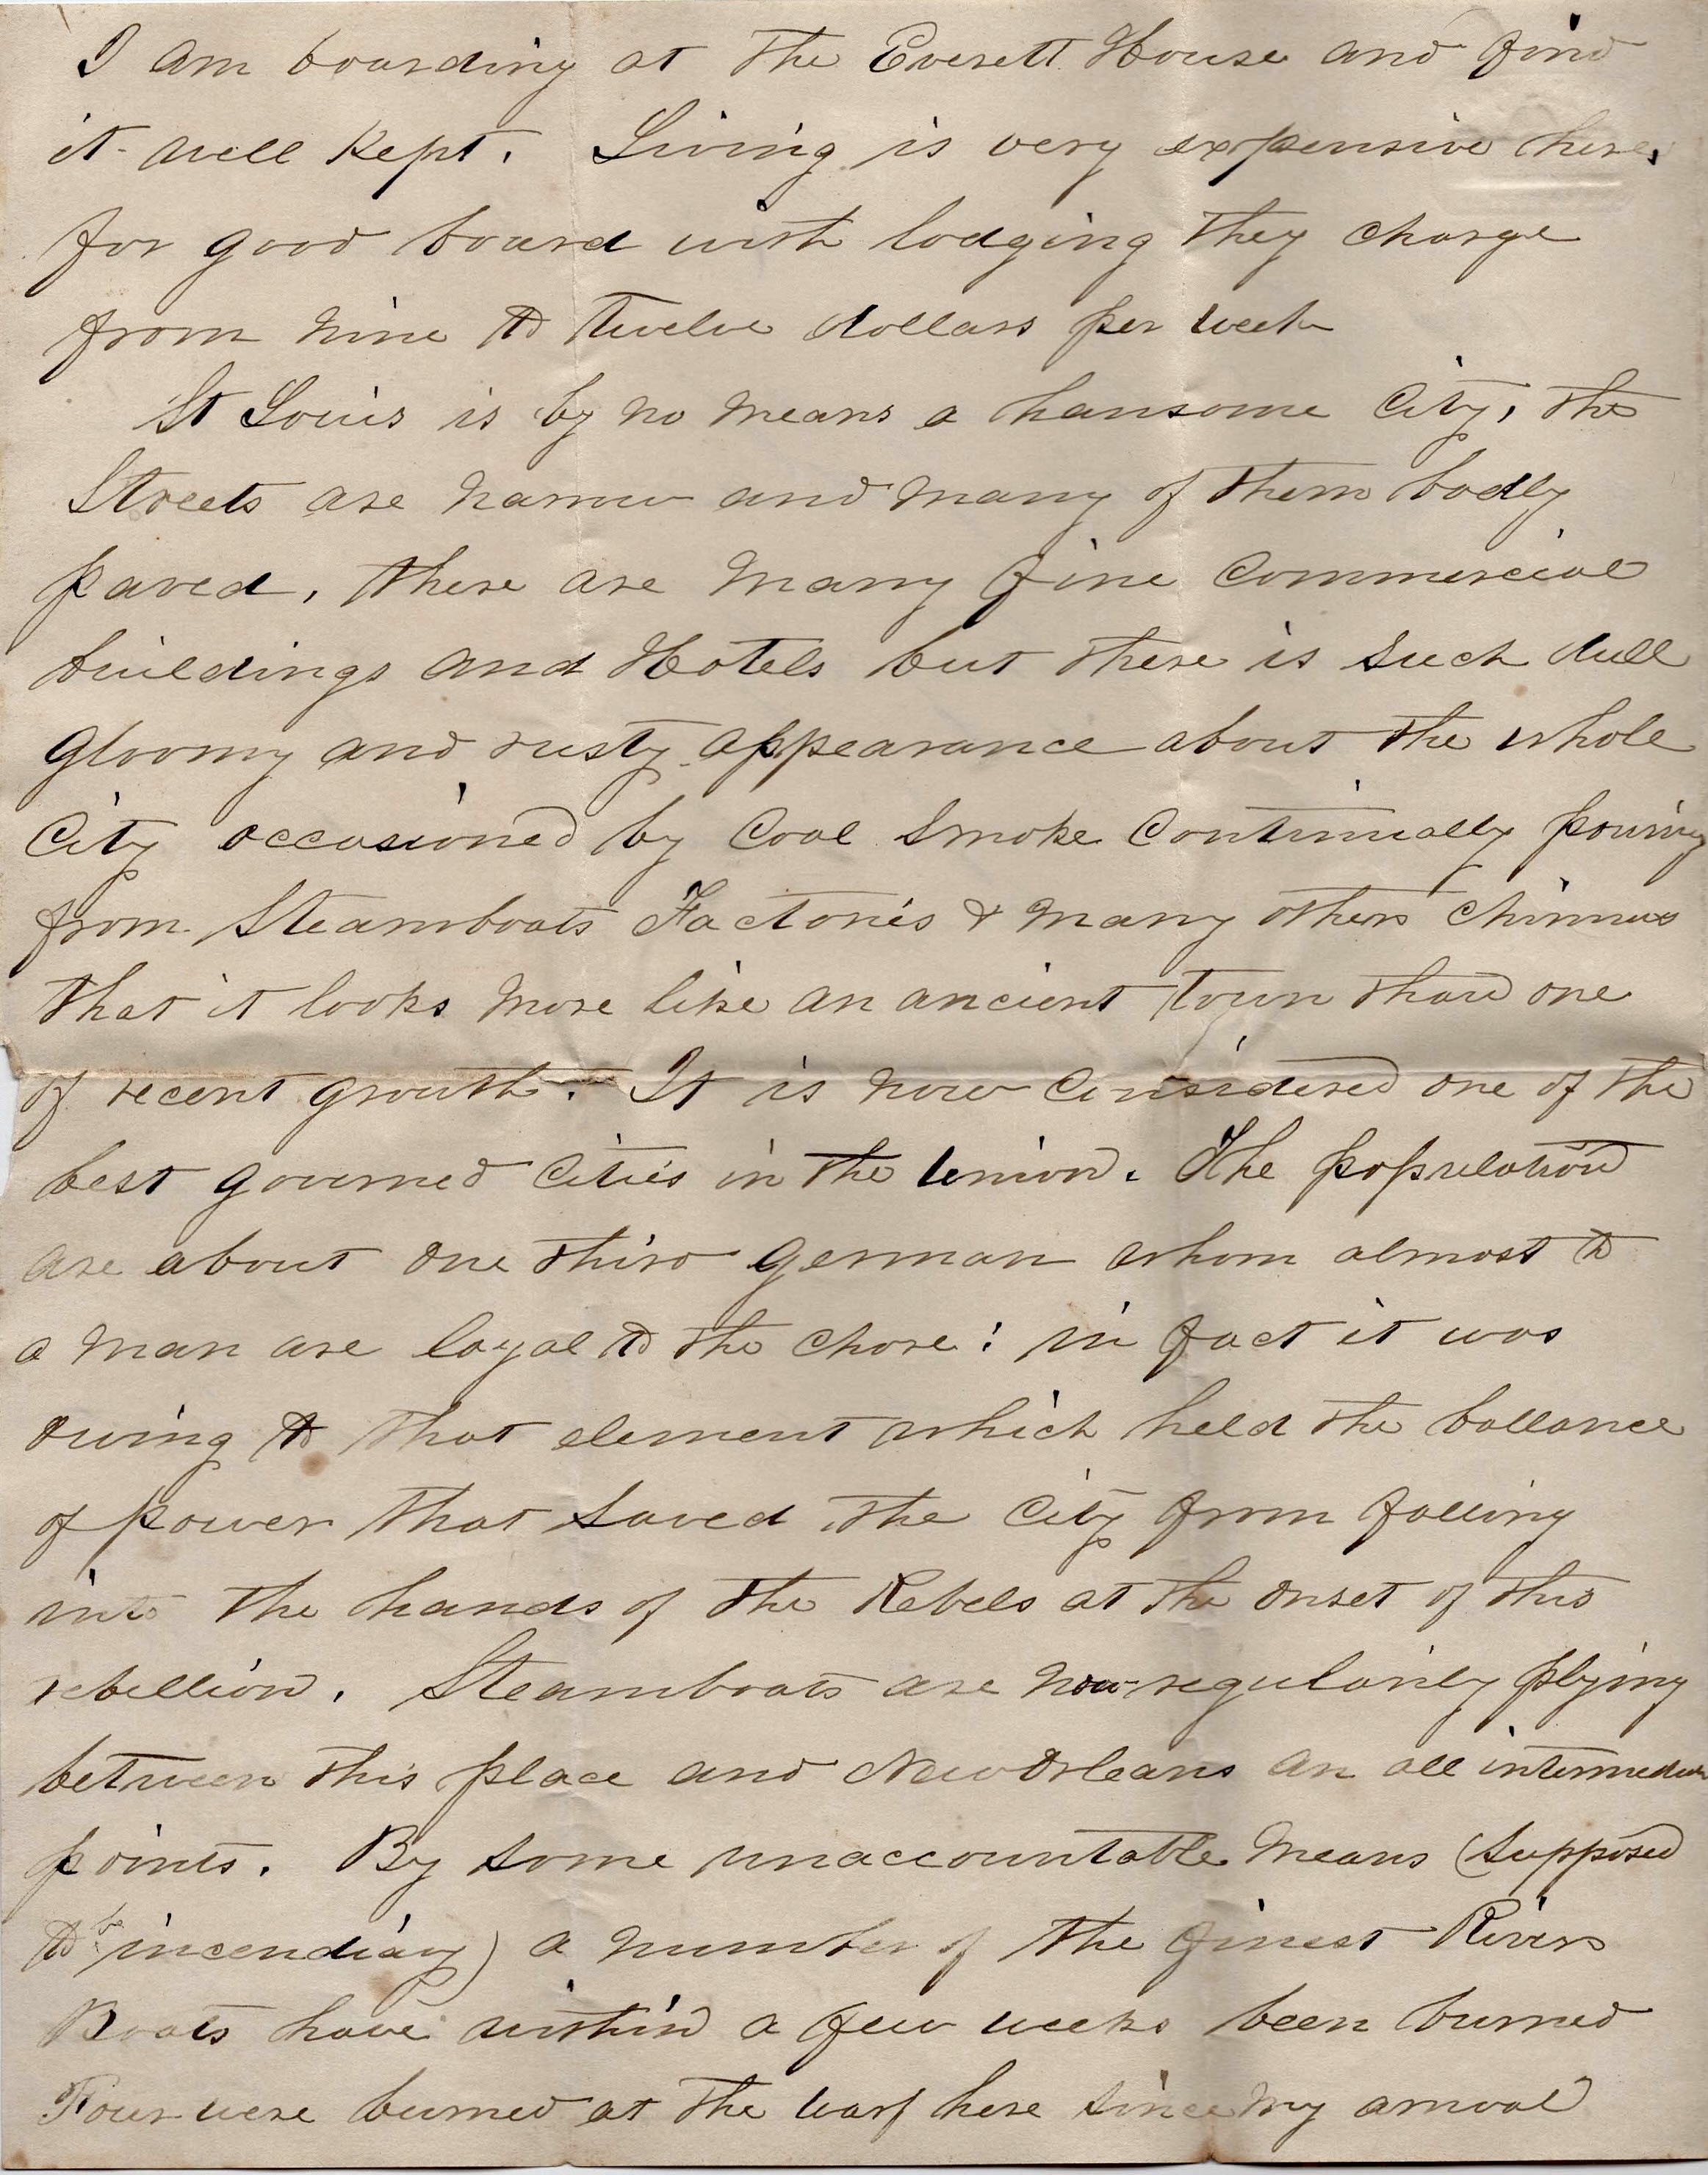 I am boarding at the Everett House and find
it well kept. Living is very expensive here,
for good board with lodging they charge
from nine to twelve dollars per week
St Louis is by no means a hansome City, the
Streets are narrow and many of them badly
paved, there are many fine Commercial
buildings and Hotels but there is such dull
gloomy and rusty appearance about the whole
City occasioned by Coal Smoke Continually pouring
from Steamboats Factories & many others Chimnes
that it looks more like an ancient town than one
of recent growth. It is now Considered one of the
best governed Cities in the Union. The population
are about one third german whom almost to
a man are loyal to the Chore: in fact it was
owing to that element which held the ballance
of power that saved the City from falling
into the hands of the Rebels at the onset of this
rebellion. Steamboats are now regularily plying
between this place and New Orleans an all intermediate
points. By some unaccountable means (supposed
to be incendiary) a number of the finest Rivers
Boats have within a few weeks been burned
Four were burned at the warf here since my arrival